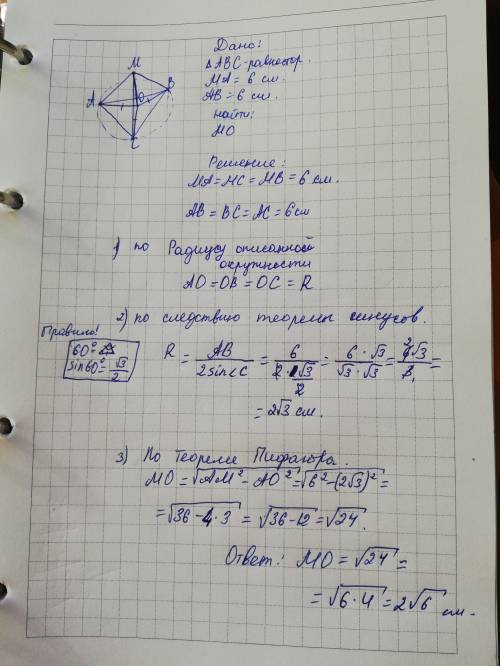 Дано:
△ABC-равностор.
MA = 6 см.
AB = 6 см.
найти:
MO
M
A
B
O
C
Решение:
MA = MC = MB = 6 см.
AB = BC = AC = 6 см
1) по Радиусу описанной
окружности
AO = OB = OC = R
2) по следствию теоремы синусов.
Правило!
60° = △
sin60° = √3/2
R = AB/(2sin∠C) = 6/(2·√3/2) = 6·√3/(√3·√3) = 6√3/3 =
= 2√3 см.
3) По теореме Пифагора.
MO = √(AM² - AO²) = √(6² - (2√3)²) =
= √(36 - 4·3) = √(36-12) = √24.
Ответ: MO = √24 =
= √(6·4) = 2√6 см.